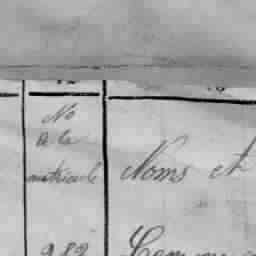 No
de la
matricule
Noms et
982